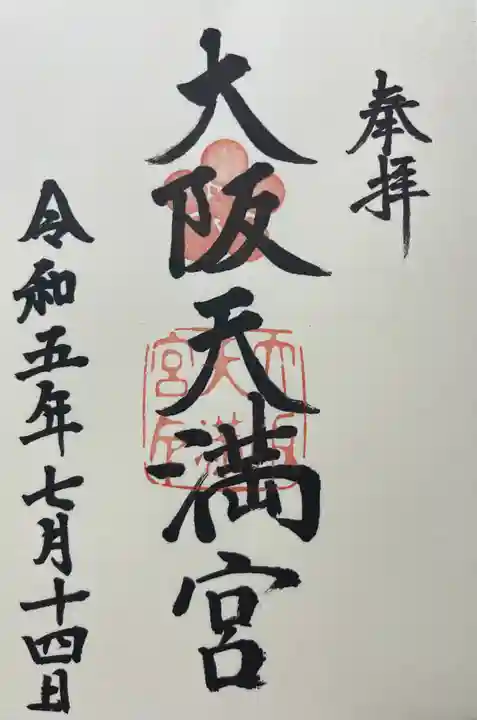 奉拝
大阪天満宮
令和五年七月十四日